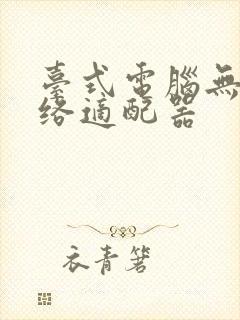 臺式電腦無
絡適配器
衣青箬